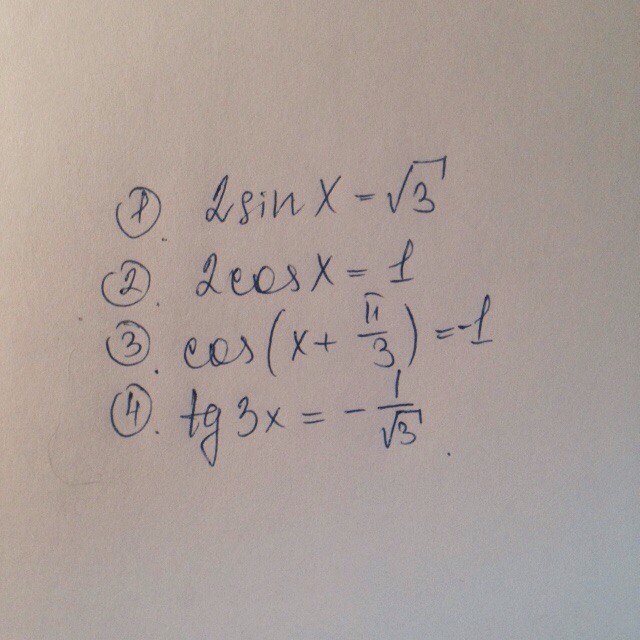 ①. 2sin x = √3
②. 2cos x = 1
③. cos(x + π/3) = -1
④. tg 3x = - 1/√3.